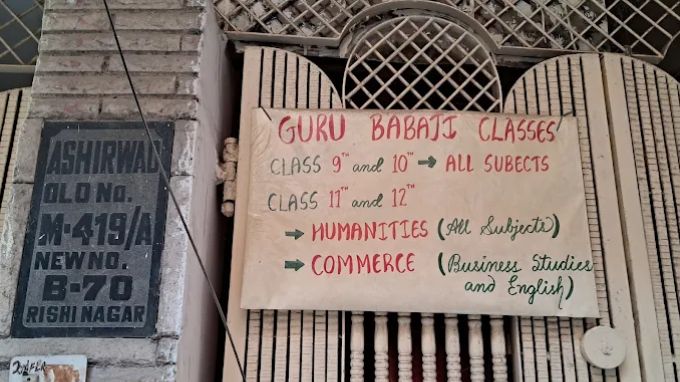 ASHIRWAD
OLD NO.
M-419/A
NEW NO.
B-70
RISHI NAGAR
GURU BABAJI CLASSES
CLASS 9TH and 10TH → ALL SUBECTS
CLASS 11TH and 12TH
→ HUMANITIES (All Subjects)
→ COMMERCE (Business Studies
and English)